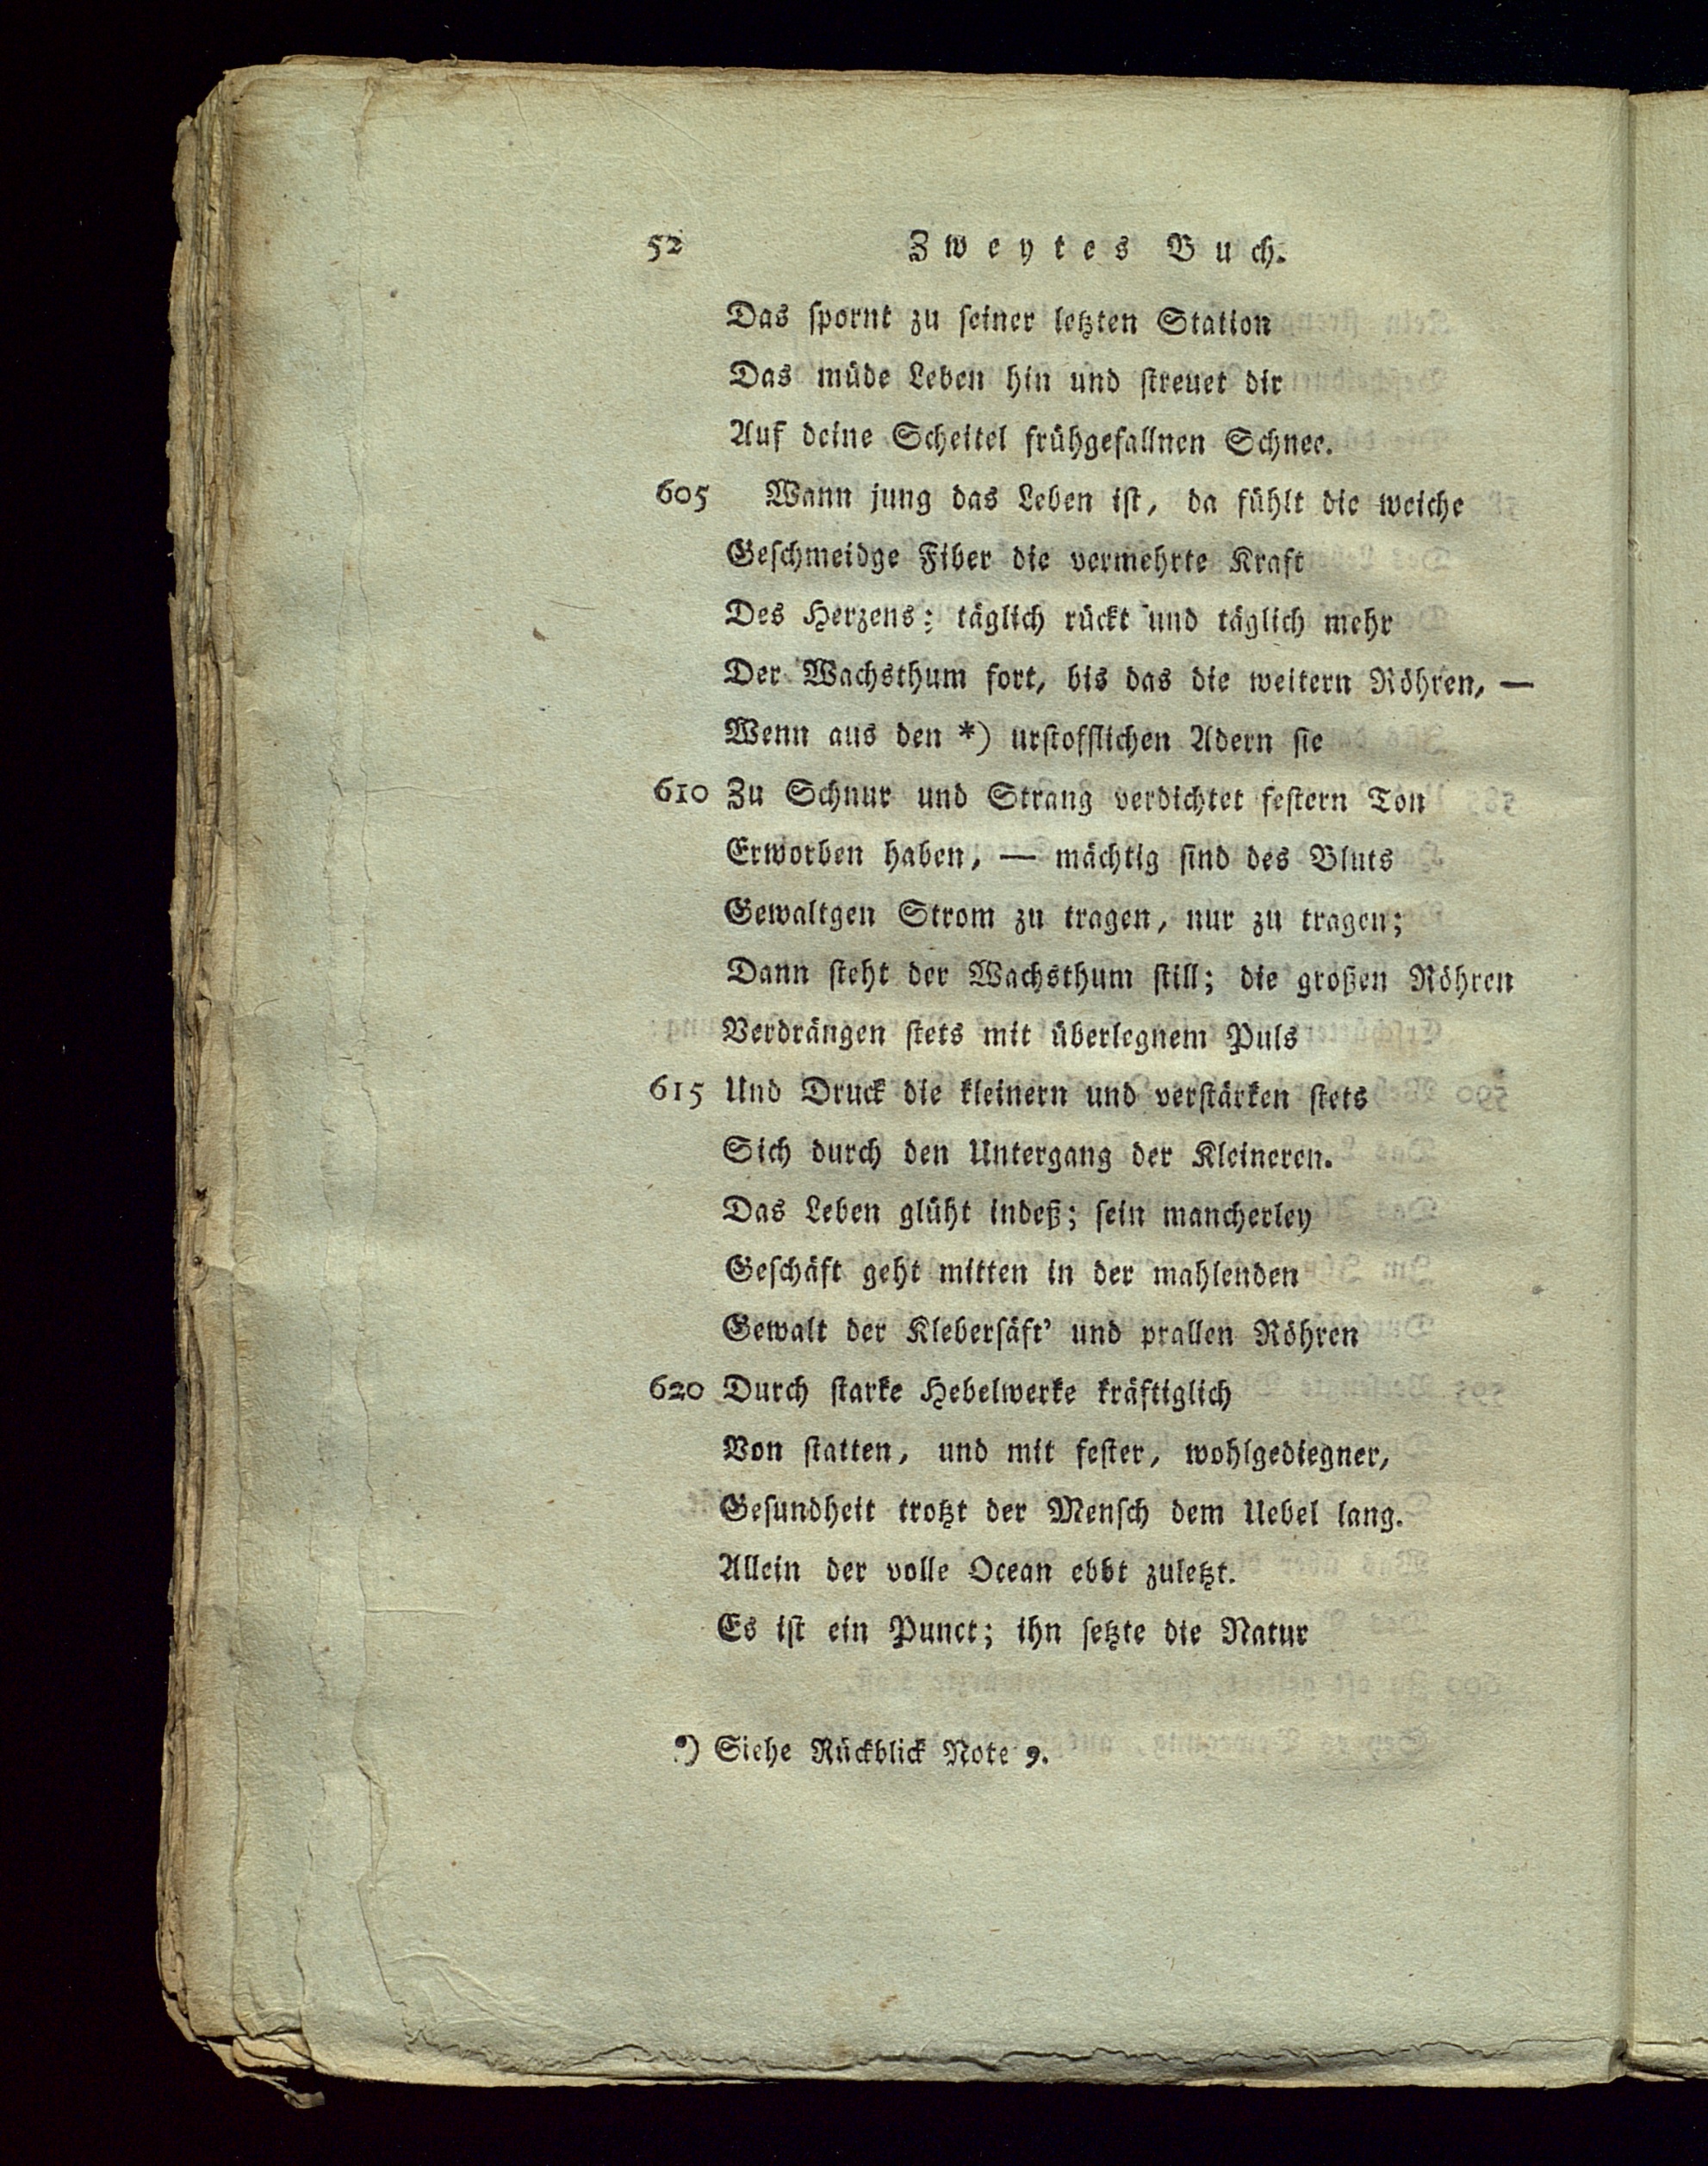 52 Zweytes Buch.
Das ſpornt zu ſeiner letzten Station
Das müde Leben hin und ſtreuet dir
Auf deine Scheitel frühgefallnen Schnee.
605 Wann jung das Leben iſt, da fühlt die weiche
Geſchmeidge Fiber die vermehrte Kraft
Des Herzens; täglich rückt und täglich mehr
Der Wachsthum fort, bis das die weitern Röhren, —
Wenn aus den *) urſtofflichen Adern ſie
610 Zu Schnur und Strang verdichtet feſtern Ton
Erworben haben, — mächtig ſind des Bluts
Gewaltgen Strom zu tragen, nur zu tragen;
Dann ſteht der Wachsthum ſtill; die großen Röhren
Verdrängen ſtets mit überlegnem Puls
615 Und Druck die kleinern und verſtärken ſtets
Sich durch den Untergang der Kleineren.
Das Leben glüht indeß; ſein mancherley
Geſchäft geht mitten in der mahlenden
Gewalt der Kleberſäft' und prallen Röhren
620 Durch ſtarke Hebelwerke kräftiglich
Von ſtatten, und mit feſter, wohlgediegner,
Geſundheit trotzt der Menſch dem Uebel lang.
Allein der volle Ocean ebbt zuletzt.
Es iſt ein Punct; ihn ſetzte die Natur
*) Siehe Rückblick Note 9.